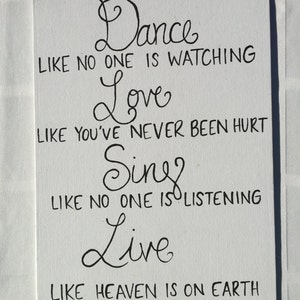 Dance
LIKE NO ONE IS WATCHING
Love
LIKE YOU'VE NEVER BEEN HURT
Sing
LIKE NO ONE IS LISTENING
Live
LIKE HEAVEN IS ON EARTH